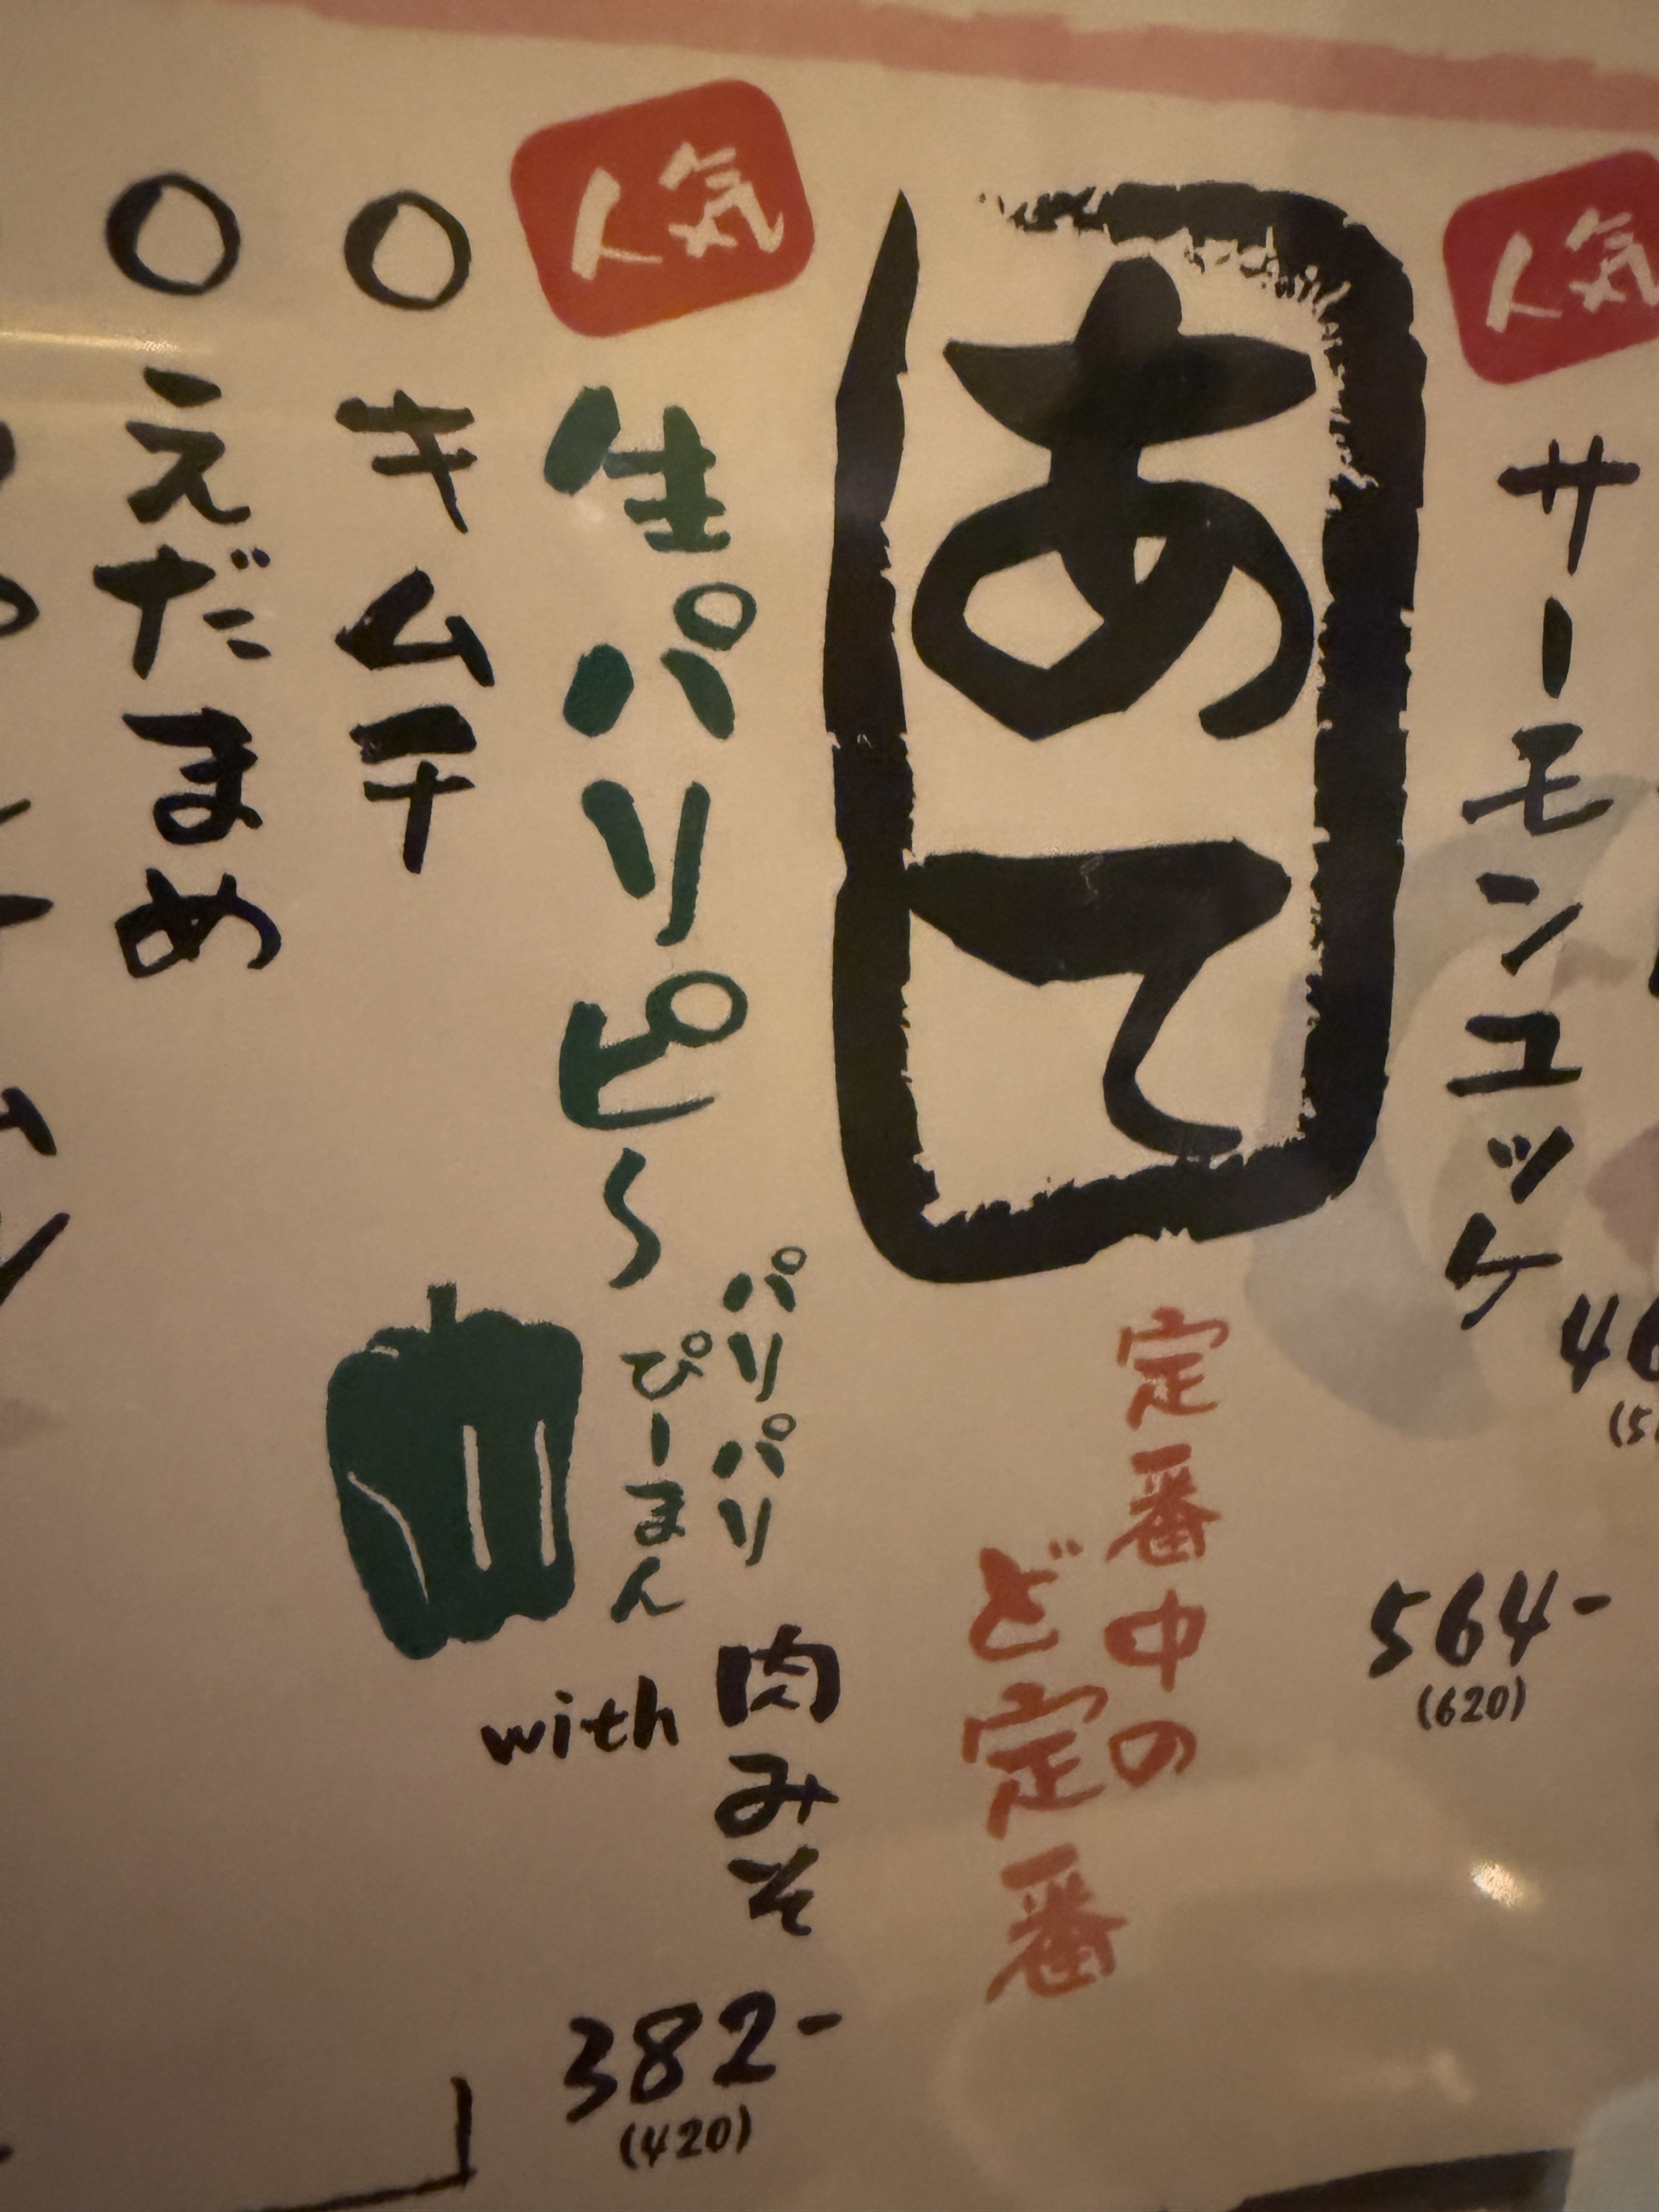 人気
サーモンユッケ
564-
(620)
あて
定番中の
ど定番
人気
生パリピ〜
パリパリ
ぴーまん
with
肉みそ
382-
(420)
○キムチ
○えだまめ